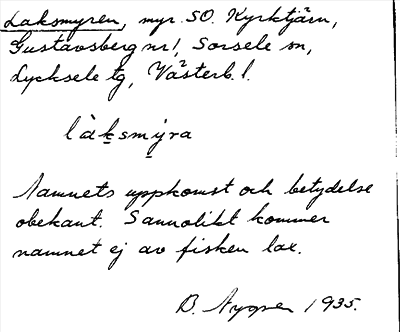 Laksmyren, myr. SO. Kyrktjärn,
Gustavsberg nr 1, Sorsele sn,
Lycksele tg, Västerb. l.
làksmy̆ra
Namnets uppkomst och betydelse
obekant. Sannolikt kommer
namnet ej av fisken lax.
B. 1935.